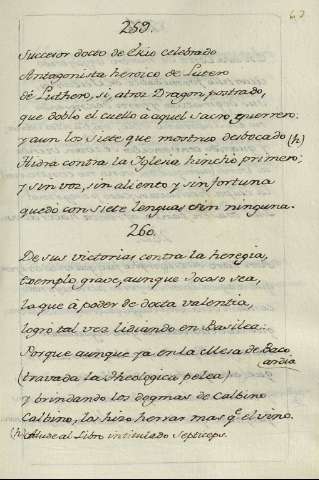 259.
Succesor docto de Ekio celebrado
Antagonista heroico de Lutero
de Luthero, si, atroz Dragon, postrado,
que doblò el cuello à aquel Sacro guerrero:
y aun los siete que monstruo desbocado (h)
Hidra contra la Iglesia hinchiò primero;
y sin voz, sin aliento y sin fortuna
quedo con siete lenguas sin ninguna.
260.
De sus victorias contra la heregia,
Exemplo grave, aunque Jocoso sea,
la que à poder de docta valentia,
logrò tal vez lidiando en Basilea:
Porque aunque ya en la Mesa de
ardia
(travada la Theologica pelea)
y brindando los dogmas de Calbino
Calbino, los hizo herrar mas q.e el vino.
(h) Alude al Libro intitulado Septiceps.